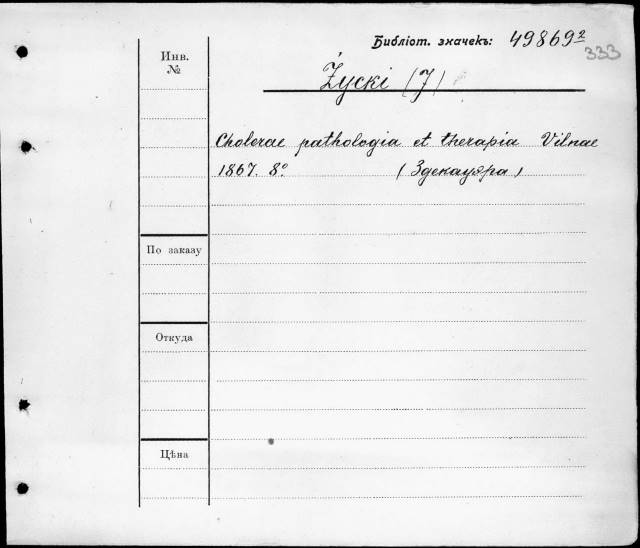 Библіот. значекъ: 49869²
333
Инв. №
Życki (J)
Cholerae pathologia et therapia Vilnae
1867. 8° (Здекауэра)
По заказу
Откуда
Цѣна